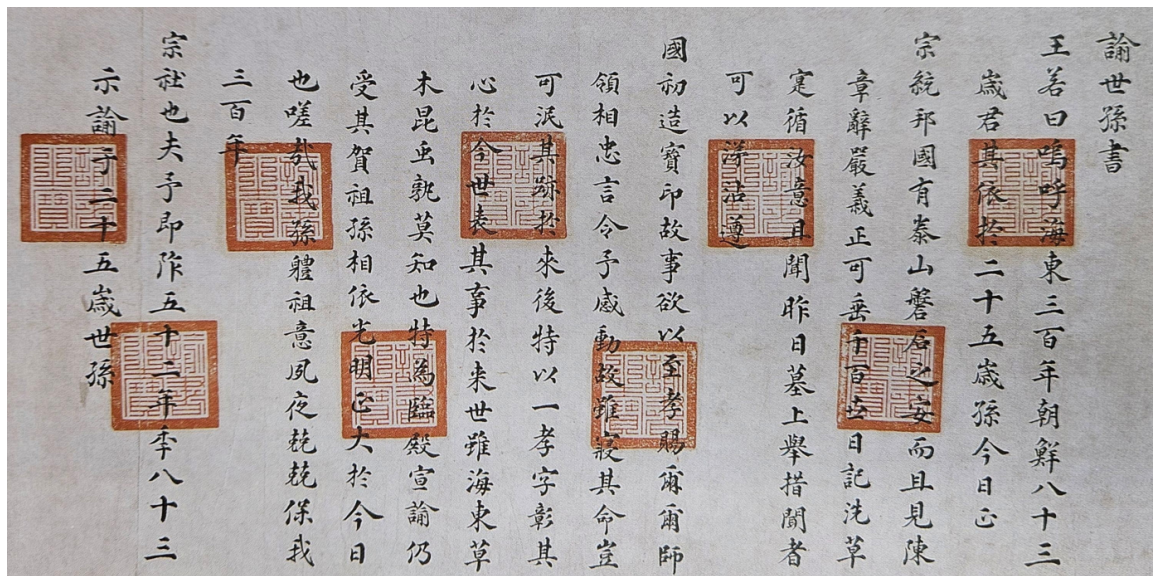 諭世孫書
王若曰嗚呼海東三百年朝鮮八十三
歲君其依於二十五歲孫今日正
宗統邦國有泰山磐石之安而且見陳
章辭嚴義正可垂千百世日記洗草
寔循汝意且聞昨日墓上舉措聞者
可以涕沾遵
國初造寶印故事欲以至孝賜爾爾師
領相忠言令予感動故雖寢其命豈
可泯其跡於來後特以一孝字彰其
心於今世表其事於来世雖海東草
木昆虫孰莫知也特為臨殿宣諭仍
受其賀祖孫相依光明正大於今日
也嗟哉我孫軆祖意夙夜兢兢保我
三百年
宗社也夫予即阼五十二年季八十三
示諭于二十五歲世孫